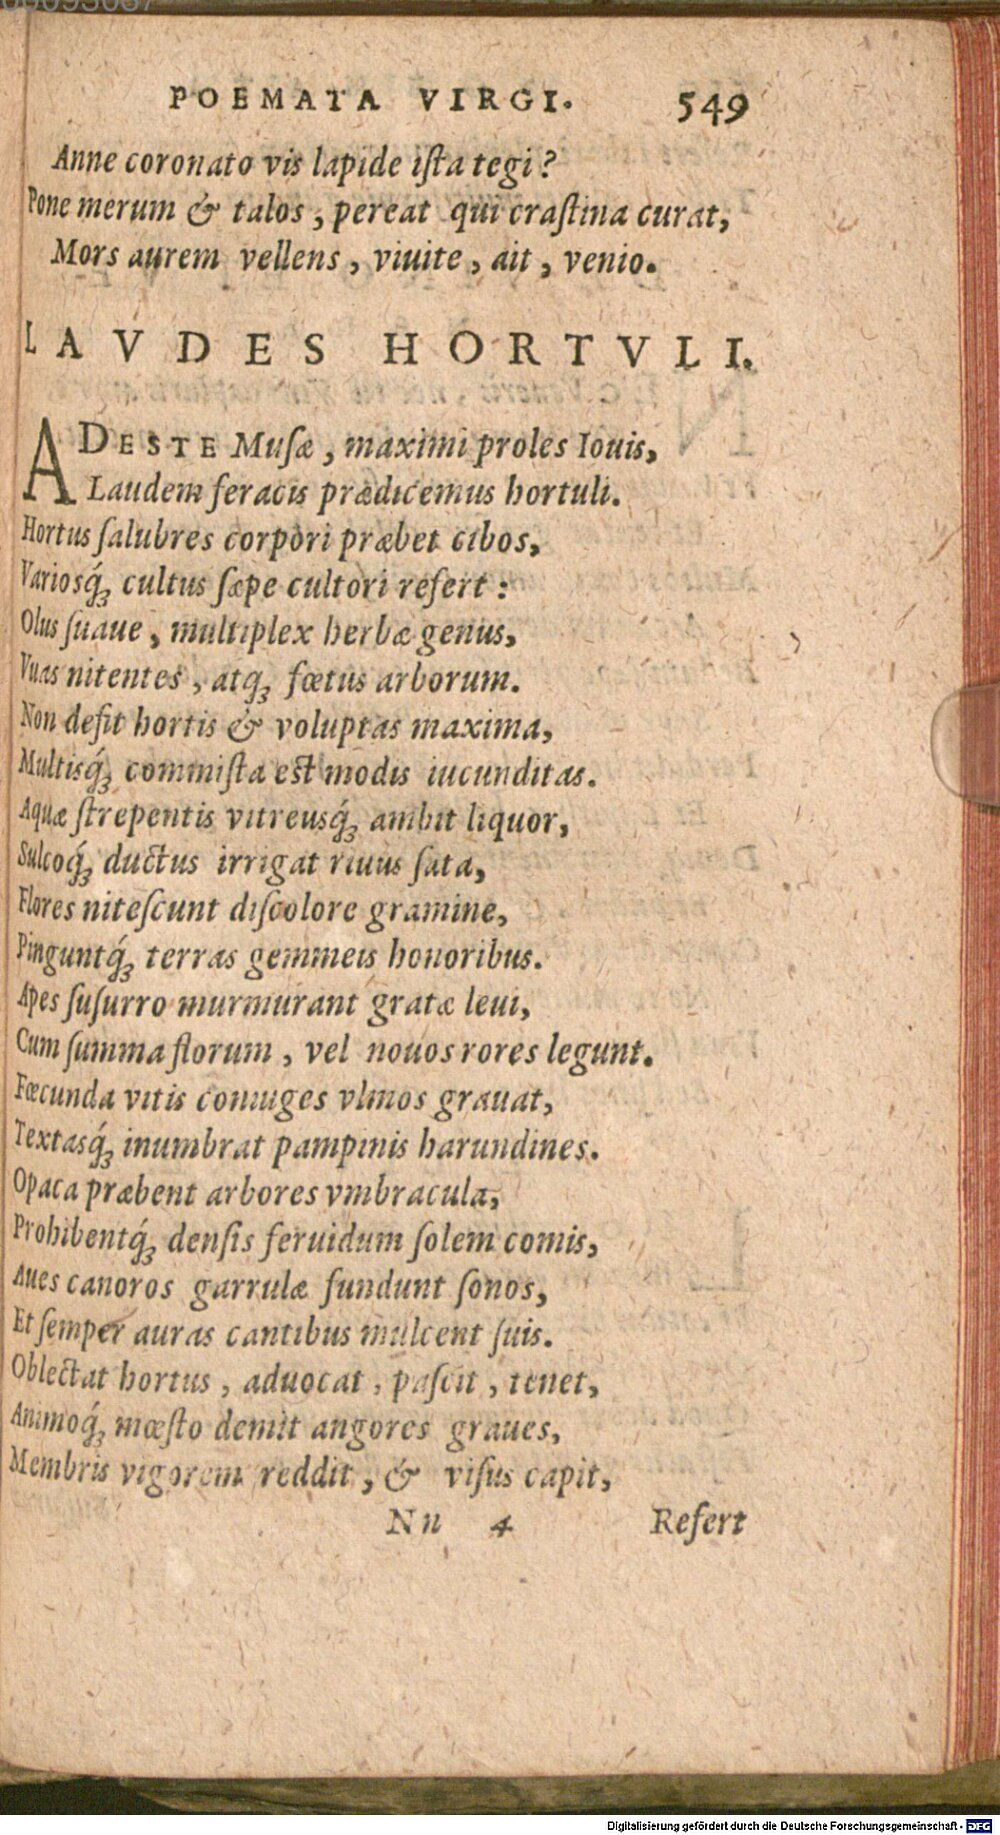 POEMATA VIRGI. 549
Anne coronato vis lapide iſta tegi?
Pone merum & talos, pereat qui craſtina curat,
Mors aurem vellens, viuite, ait, venio.
LAVDES HORTVLI.
ADESTE Muſæ, maximi proles Iouis,
Laudem feracis prædicemus hortuli.
Hortus ſalubres corpori præbet cibos,
Variosq́ꝫ cultus ſæpe cultori refert:
Olus ſuaue, multiplex herbæ genus,
Vuas nitentes, atqꝫ fœtus arborum.
Non deſit hortis & voluptas maxima,
Multisq́ꝫ commiſta est modis iucunditas.
Aquæ ſtrepentis vitreusq́ꝫ ambit liquor,
Sulcoq́ꝫ ductus irrigat riuus ſata,
Flores niteſcunt diſcolore gramine,
Pinguntq́ꝫ terras gemmeis honoribus.
Apes ſuſurro murmurant gratæ leui,
Cum ſumma florum, vel nouos rores legunt.
Fœcunda vitis coniuges vlmos grauat,
Textasq́ꝫ inumbrat pampinis harundines.
Opaca præbent arbores vmbracula,
Prohibentq́ꝫ denſis feruidum ſolem comis,
Aues canoros garrulæ fundunt ſonos,
Et ſemper auras cantibus mulcent ſuis.
Oblectat hortus, aduocat, paſcit, tenet,
Animoq́ꝫ mœſto demit angores graues,
Membris vigorem reddit, & viſus capit,
Nn 4 Refert
Digitalisierung gefördert durch die Deutsche Forschungsgemeinschaft - DFG